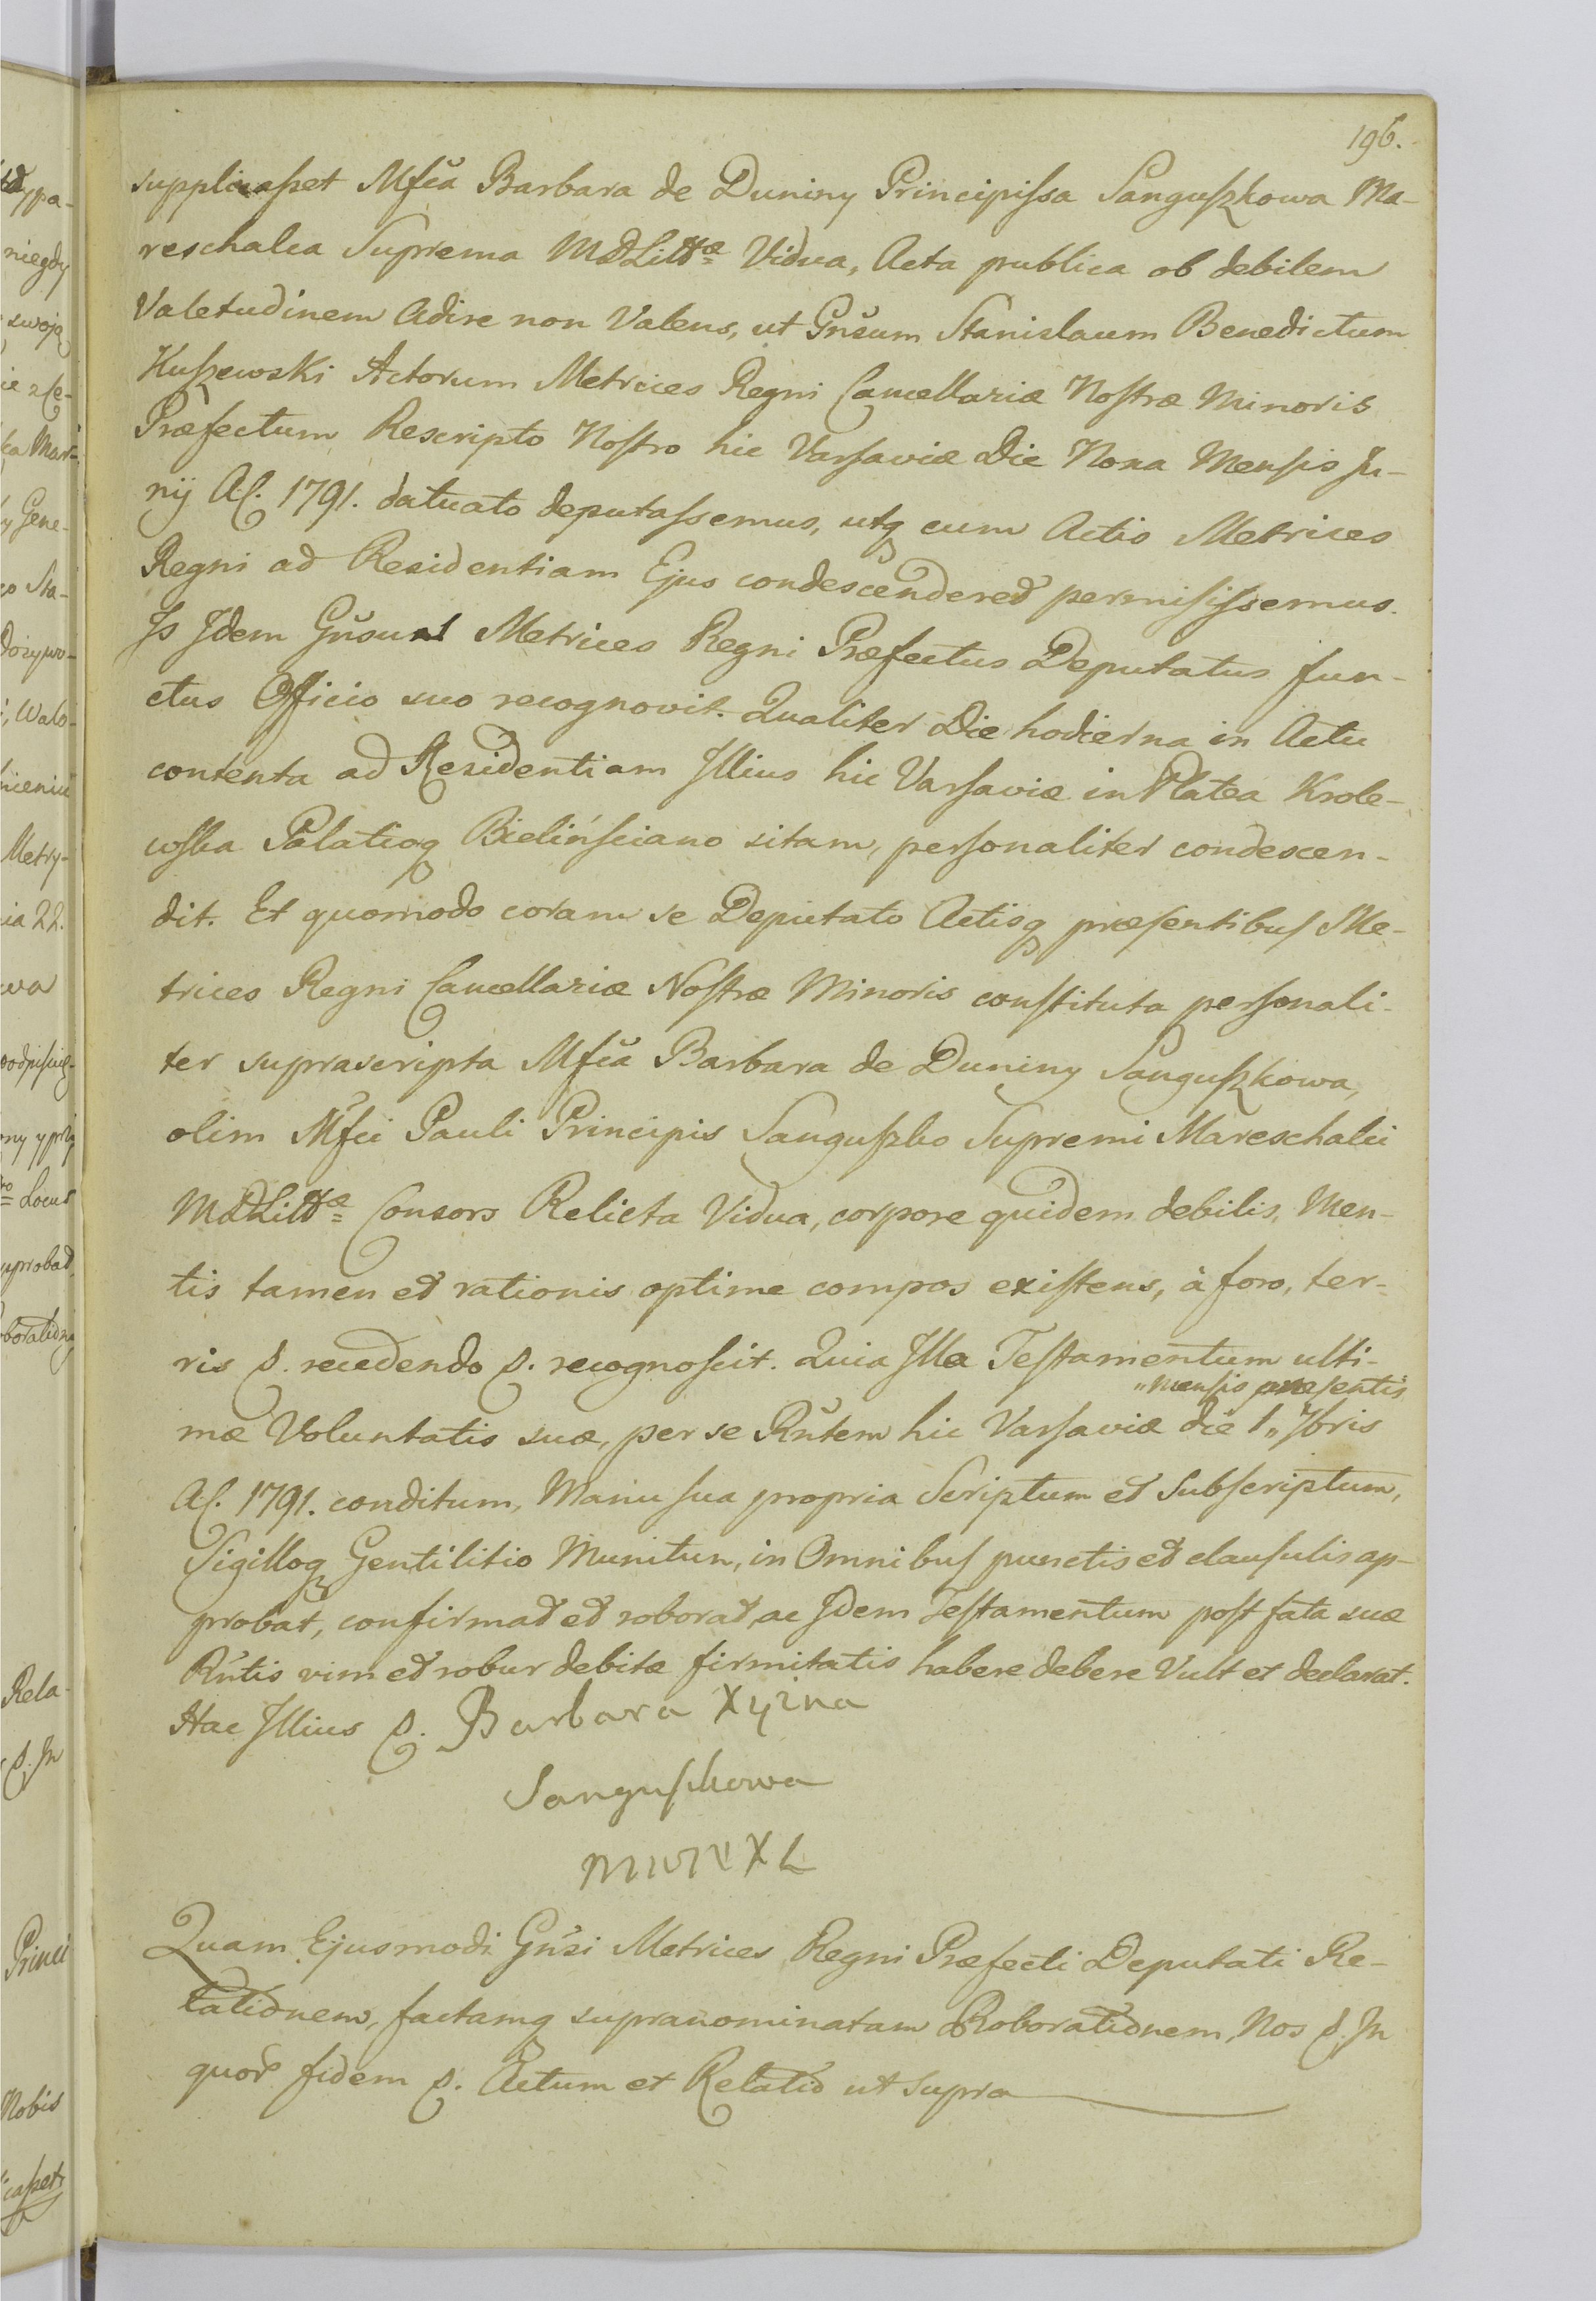 196.
supplicaſset Mfca Barbara de Duniny Principiſsa Sanguſzkowa Ma-
reschalca Suprema MDLittæ Vidua, Acta publica ob debilem
Valetudinem Adire non Valens, ut Gnsum Stanislaum Benedictum
Kuſzewski Actorum Metrices Regni Cancellariæ Noſtræ Minoris
Præfectum Rescripto Noſtro hic Varſaviæ Die Nona Menſis Ju-
nij A.C. 1791. datuato deputaſsemus, utq cum Actis Metrices
Regni ad Residentiam Ejus condescenderet permiſiſsemus.
Is Idem Gnsus Metrices Regni Præfectus Deputatus fun-
ctus Officio suo recognovit. Qualiter Die hodierna in Actu
contenta ad Residentiam Illius hic Varſaviæ in Platea Krole-
wſka Palatioq Bielińſciano sitam, perſonaliter condescen-
dit. Et quomodo coram se Deputato Actisq præſentibuſ Me-
trices Regni Cancellariæ Noſtræ Minoris conſtituta perſonali-
ter suprascripta Mfca Barbara de Duniny Sanguſzkowa,
olim Mfci Pauli Principis Sanguſzko Supremi Mareschalci
MDLittæ Consors Relicta Vidua, corpore quidem debilis, Men-
tis tamen et rationis optime compos exiſtens, à foro, ter-
ris p. recedendo p. recognoſcit. Quia Illa Teſtamentum ulti-
„menſis præſentis
mæ Voluntatis suæ, per se Rntem hic Varſaviæ die 1„ 7bris
A.C. 1791. conditum, Manu ſua propria Scriptum et Subſcriptum,
Sigilloq Gentilitio Munitum, in Omnibuſ punctis et clauſulis ap-
probat, confirmat et roborat, ac Idem Teſtamentum poſt fata suæ
Rntis vim et robur debitæ firmitatis habere debere Vult et declarat.
Hac Illius p. Barbara Xzina
Sanguſzkowa
MWWXL
Quam Ejusmodi Gnsi Metrices Regni Præfecti Deputati Re-
lationem, factamq supranominatam Roborationem, Nos p. In
quor fidem p. Actum et Relatio ut Supra